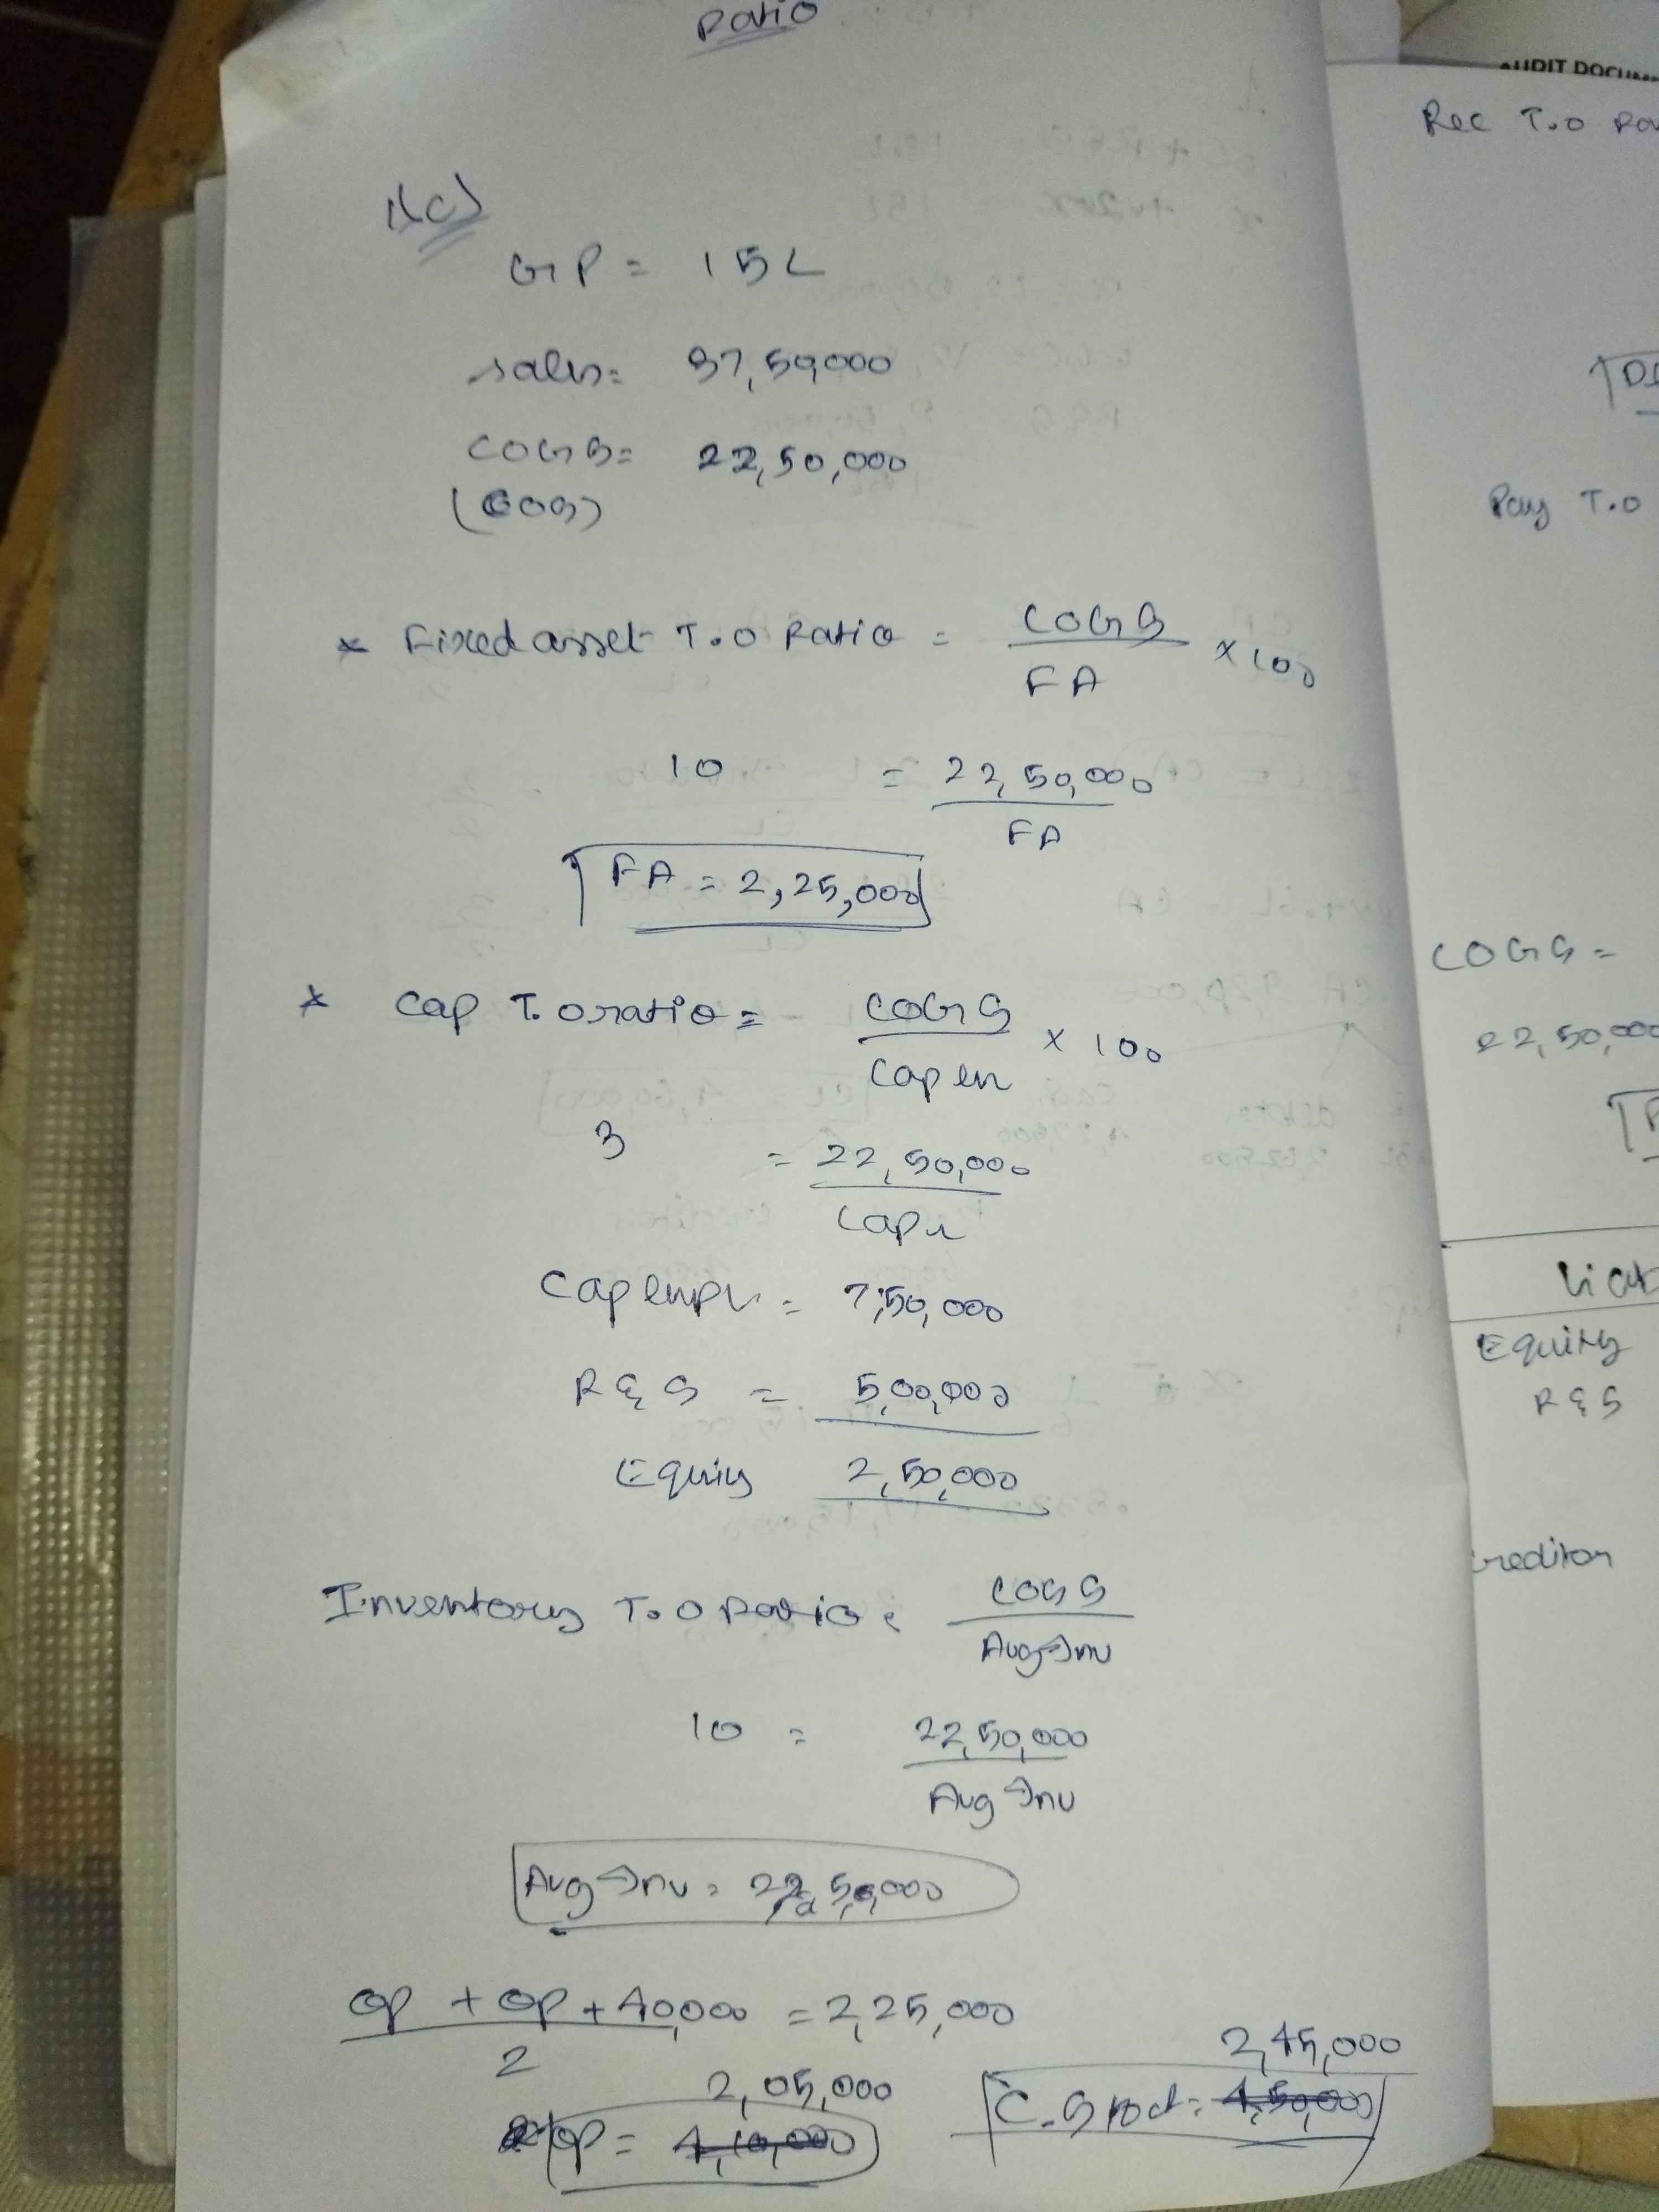 Ratio
1(c)
GP = 15L
Sales = 37,50,000
COGS = 22,50,000
(COS)
* Fixed asset T.O Ratio = COGS / FA × 100
10 = 22,50,000 / FA
FA = 2,25,000
* Cap T.O ratio = COGS / Cap em × 100
3 = 22,50,000 / Cap
Cap empl = 7,50,000
R & S = 5,00,000
Equity 2,50,000
Inventory T.O Ratio = COGS / Avg Inv
10 = 22,50,000 / Avg Inv
Avg Inv = 2,25,000
op + op + 40,000 / 2 = 2,25,000
2,05,000
op = 4,10,000
2,45,000
C. Stock = 4,50,000
AUDIT DOCUM
Rec T.O
Pay T.O
COGS =
22,50,000
Equity
R & S
creditor